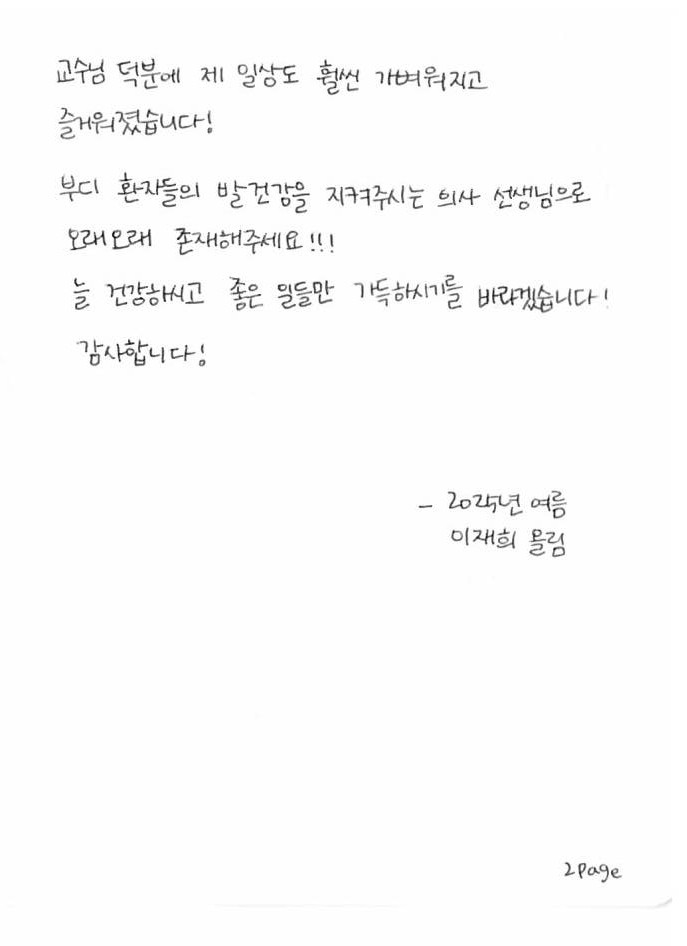 교수님 덕분에 제 일상도 훨씬 가벼워지고
즐거워졌습니다!
부디 환자들의 발건강을 지켜주시는 의사 선생님으로
오래오래 존재해주세요!!!
늘 건강하시고 좋은 일들만 가득하시기를 바라겠습니다!
감사합니다!
- 2025년 여름
이재희 올림
2page